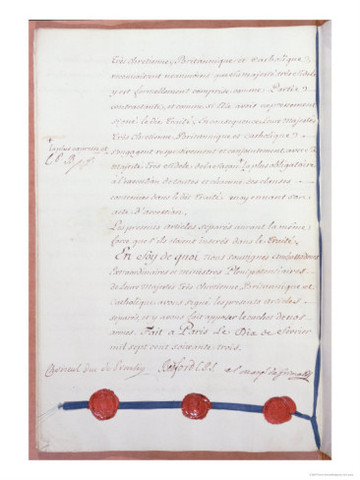 Très chrétienne, Britannique, et Catholique,
reconnoissent que Sa Majesté très fidèle
y est formellement comprise comme Partie
contractante, et comme si Elle avoit expressement
signé le dit Traité. En conséquence, Leurs Majestés
Très Chrétienne, Britannique et Catholique
s'engagent respectivement et conjointement avec Sa
Majesté Très fidele, de la façon la plus obligatoire,
à l'execution de toutes et chacune des clauses
contenues dans le dit Traité, moyennant son
acte d'accession.
Les presents articles séparés auront la même
force que s'ils étoient inserés dans le Traité.
En Foy de quoi, Nous soussignés Ambassadeurs
Extraordinaires et ministres Plenipotentiaires
de Leurs Majestés très Chrétienne, Britannique et
Catholique, avons signé les presents articles
separés, et y avons fait apposer le cachet de nos
armes. Fait à Paris Le Dix de Fevrier
mil sept cent soixante trois.
la plus expresse et
Choiseul Duc de Praslin Bedford C.P.S. el Marqs de Grimaldi